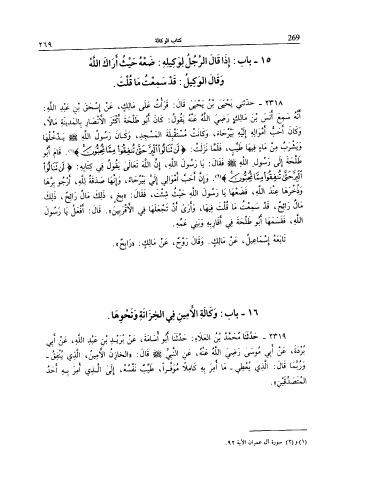 269
كتاب الوكالة
٢٦٩
١٥ - باب : إِذَا قَالَ الرَّجُلُ لِوَكِيلِهِ : ضَعْهُ حَيْثُ أَرَاكَ اللَّهُ
وَقَالَ الْوَكِيلُ : قَدْ سَمِعْتُ مَا قُلْتَ .
٢٣١٨ - حدّثني يَحْيَىٰ بْنُ يَحْيَىٰ قَالَ : قَرَأْتُ عَلَى مَالِكٍ، عَنْ إِسْحَقَ بْنِ عَبْدِ اللَّهِ :
أَنَّهُ سَمِعَ أَنَسَ بْنَ مَالِكٍ رَضِيَ اللَّهُ عَنْهُ يَقُولُ : كَانَ أَبُو طَلْحَةَ أَكْثَرَ الْأَنْصَارِ بِالْمَدِينَةِ مَالًا،
وَكَانَ أَحَبَّ أَمْوَالِهِ إِلَيْهِ بَيْرُحَاءَ، وَكَانَتْ مُسْتَقْبِلَةَ الْمَسْجِدِ، وَكَانَ رَسُولُ اللَّهِ ﷺ يَدْخُلُهَا
وَيَشْرَبُ مِنْ مَاءٍ فِيهَا طَيِّبٍ، فَلَمَّا نَزَلَتْ : ﴿لَن تَنَالُوا الْبِرَّ حَتَّىٰ تُنفِقُوا مِمَّا تُحِبُّونَ﴾(١). قَامَ أَبو
طَلْحَةَ إِلَى رَسُولِ اللَّهِ ﷺ فَقَالَ : يَا رَسُولَ اللَّهِ، إِنَّ اللَّهَ تَعَالَى يَقُولُ فِي كِتَابِهِ : ﴿لَن تَنَالُوا
الْبِرَّ حَتَّىٰ تُنفِقُوا مِمَّا تُحِبُّونَ﴾(٢). وَإِنَّ أَحَبَّ أَمْوَالِي إِلَيَّ بَيْرُحَاءَ، وَإِنَّهَا صَدَقَةٌ لِلَّهِ، أَرْجُو بِرَّهَا
وَذُخْرَهَا عِنْدَ اللَّهِ، فَضَعْهَا يَا رَسُولَ اللَّهِ حَيْثُ شِئْتَ، فَقَالَ : «بَخٍ، ذَلِكَ مَالٌ رَائِحٌ، ذَلِكَ
مَالٌ رَائِحٌ، قَدْ سَمِعْتُ مَا قُلْتَ فِيهَا، وَأَرَىٰ أَنْ تَجْعَلَهَا فِي الْأَقْرَبِينَ». قَالَ : أَفْعَلُ يَا رَسُولَ
اللَّهِ، فَقَسَمَهَا أَبُو طَلْحَةَ فِي أَقَارِبِهِ وَبَنِي عَمِّهِ.
تَابَعَهُ إِسْمَاعِيلُ، عَنْ مَالِكٍ. وَقَالَ رَوْحٌ، عَنْ مَالِكٍ : «رَابِحٌ».
١٦ - باب : وَكَالَةِ الْأَمِينِ فِي الْخِزَانَةِ وَنَحْوِهَا .
٢٣١٩ - حَدَّثَنَا مُحَمَّدُ بْنُ الْعَلَاءِ : حَدَّثَنَا أَبُو أُسَامَةَ، عَنْ بُرَيْدِ بْنِ عَبْدِ اللَّهِ، عَنْ أَبِي
بُرْدَةَ، عَنْ أَبِي مُوسَىٰ رَضِيَ اللَّهُ عَنْهُ، عَنِ النَّبِيِّ ﷺ قَالَ : «الْخَازِنُ الْأَمِينُ، الَّذِي يُنْفِقُ -
وَرُبَّمَا قَالَ : الَّذِي يُعْطِي - مَا أُمِرَ بِهِ كَامِلًا مُوَفَّرًا، طَيِّبٌ نَفْسُهُ، إِلَى الَّذِي أُمِرَ بِهِ أَحَدُ
الْمُتَصَدِّقَيْنِ».
(١) و(٢) سورة آل عمران الآية ٩٢.